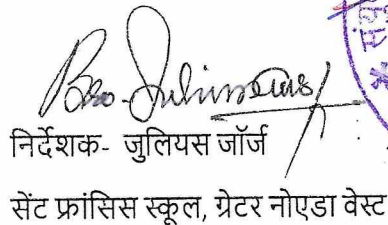 Bro. Julius
निर्देशक- जुलियस जॉर्ज
सेंट फ्रांसिस स्कूल, ग्रेटर नोएडा वेस्ट